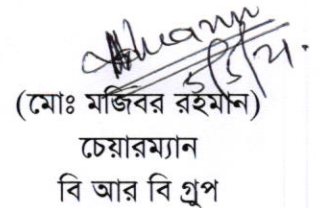 (মোঃ মজিবর রহমান)
চেয়ারম্যান
বি আর বি গ্রুপ